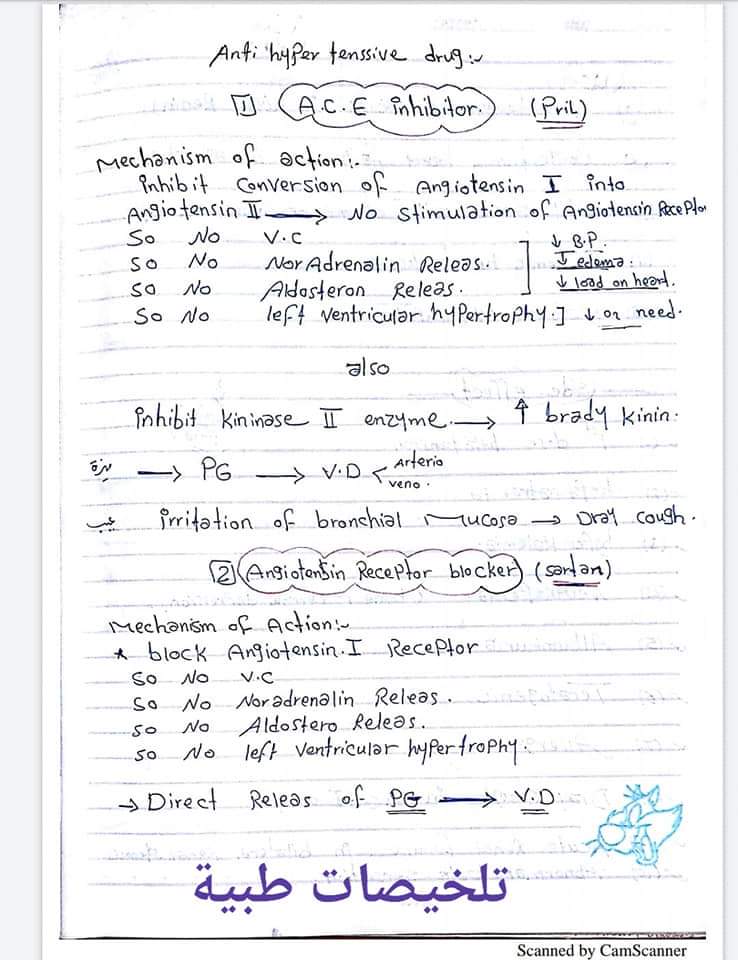 Anti hyper tenssive drug:-
1 A.C.E inhibitor. (Pril)
Mechanism of action:-
inhibit Conversion of Angiotensin I into
Angiotensin II → No Stimulation of Angiotensin Receptor
So No V.C
So No NorAdrenalin Releas. ↓ B.P.
So No Aldosteron Releas. ↓ edema.
↓ load on heart.
So No left Ventricular hypertrophy.] ↓ O2 need.
also
inhibit Kininase II enzyme. → ↑ brady Kinin.
ميزة → PG → V.D < Arterio
veno.
عيب irritation of bronchial Mucosa → Dray Cough.
2 Angiotensin Receptor blocker (sartan)
Mechanism of Action:-
* block Angiotensin.I Receptor
So No V.C
So No Noradrenalin Releas.
So No Aldostero Releas.
So No left Ventricular hypertrophy.
→ Direct Releas of PG → V.D
تلخيصات طبية
Scanned by CamScanner